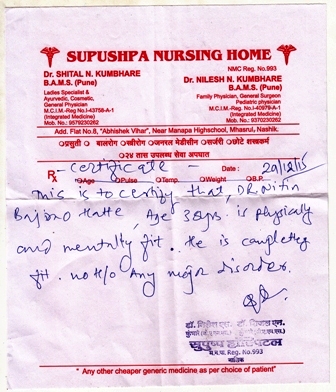 SUPUSHPA NURSING HOME
NMC Reg. No.993
Dr. SHITAL N. KUMBHARE
B.A.M.S. (Pune)
Ladies Specialist &
Ayurvedic, Cosmetic,
General Physician
M.C.I.M.-Reg No.I-43758-A-1
(Integrated Medicine)
Mob. No.: 8579230262
Dr. NILESH N. KUMBHARE
B.A.M.S. (Pune)
Family Physician, General Surgeon
Pediatric physician
M.C.I.M.-Reg No.I-40979-A-1
(Integrated Medicine)
Mob. No.: 9370230262
Add. Flat No.8, "Abhishek Vihar", Near Manapa Highschool, Mhasrul, Nashik.
❍प्रसुती ❍ बालरोग ❍स्त्रीरोग ❍जनरल मेडीसीन ❍सर्जरी ❍छोटे शस्त्रकर्म
❍२४ तास उपलब्ध सेवा अपघात
Certificate
Date : 29/12/15
Rx ❍Age ❍Pulse ❍Temp. ❍Weight ❍B.P.
This is to certify that, DR. Nitin
Age 38yrs. is physically
and mentally fit.. He is completely
fit. no H/o Any major disorder.
डॉ. निलेश एन. डॉ. शितल एन.
सुपुष्प हॉस्पिटल
Reg. No.993
नाशिक
" Any other cheaper generic medicine as per choice of patient"